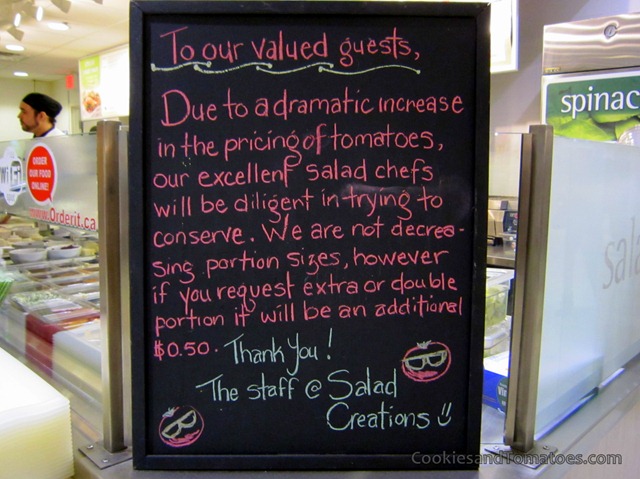 To our valued guests,
Due to a dramatic increase
in the pricing of tomatoes,
our excellent salad chefs
will be diligent in trying to
conserve. We are not decrea-
sing portion sizes, however
if you request extra or double
portion it will be an additional
$0.50. Thank You!
The staff @ Salad
Creations
ORDER
OUR FOOD
ONLINE!
www.Orderit.ca
spinac
sala
CookiesandTomatoes.com